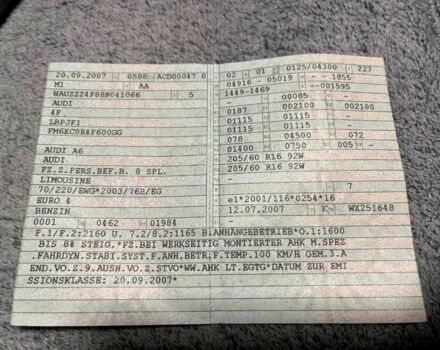 20.09.2007 0588 ACD00047 0
M1 AA
WAUZZZ4F88N041066 5
AUDI
4F
LBPJF1
FM6XC0R4F600GG
AUDI A6
AUDI
FZ.Z.PERS.BEF.B. 8 SPL.
LIMOUSINE
70/220/EWG*2003/76B/EG
EURO 4
BENZIN
0001 0462 01984
02 01 0125/04300 227
04916 - 05019 - - 1855
1449-1469 - -001595
- 00085 - -
0187 002100 002100
0115 01115 - -
0115 01115 - -
078 04500 072
01400 0750 005 - -
205/60 R16 92W
205/60 R16 92W
- 7
e1*2001/116*0254*16
12.07.2007 K WX251648
F.1/F.2:2160 U. 7.2/8.2:1165 B.ANHÄNGEBETRIEB*O.1:1600
BIS 8% STEIG.*FZ.BEI WERKSEITIG MONTIERTER AHK M.SPEZ
.FAHRDYN.STABI.SYST.F.ANH.BETR,F.TEMP.100 KM/H GEM.3.A
END.VO.Z.9.AUSN.VO.Z.STVO*WW.AHK LT.EGTG*DATUM ZUR EMI
SSIONSKLASSE: 20.09.2007*